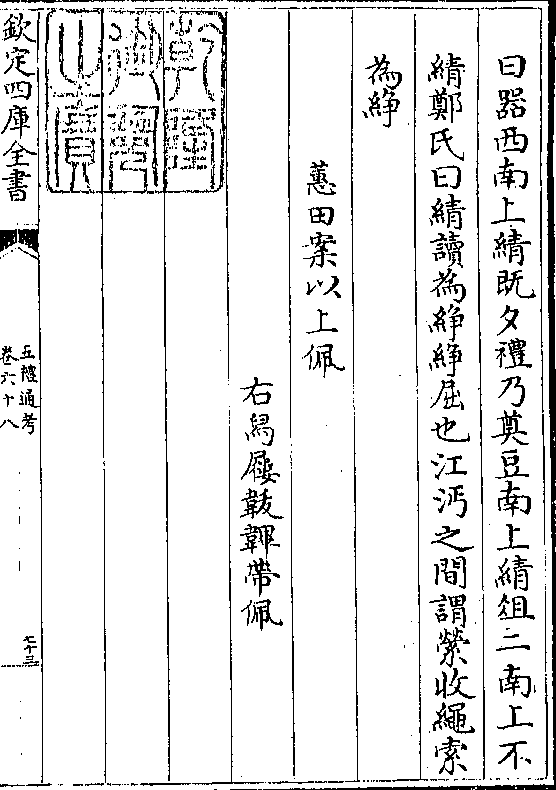 曰器西南上綪既夕禮乃奠豆南上綪俎二南上不
綪鄭氏曰綪讀為絣絣屈也江沔之間謂縈收繩索
為絣
蕙田案以上佩
右舄屨韍韠帶佩
乾隆御覽之寶
欽定四庫全書
五禮通考
卷六十八
七十三